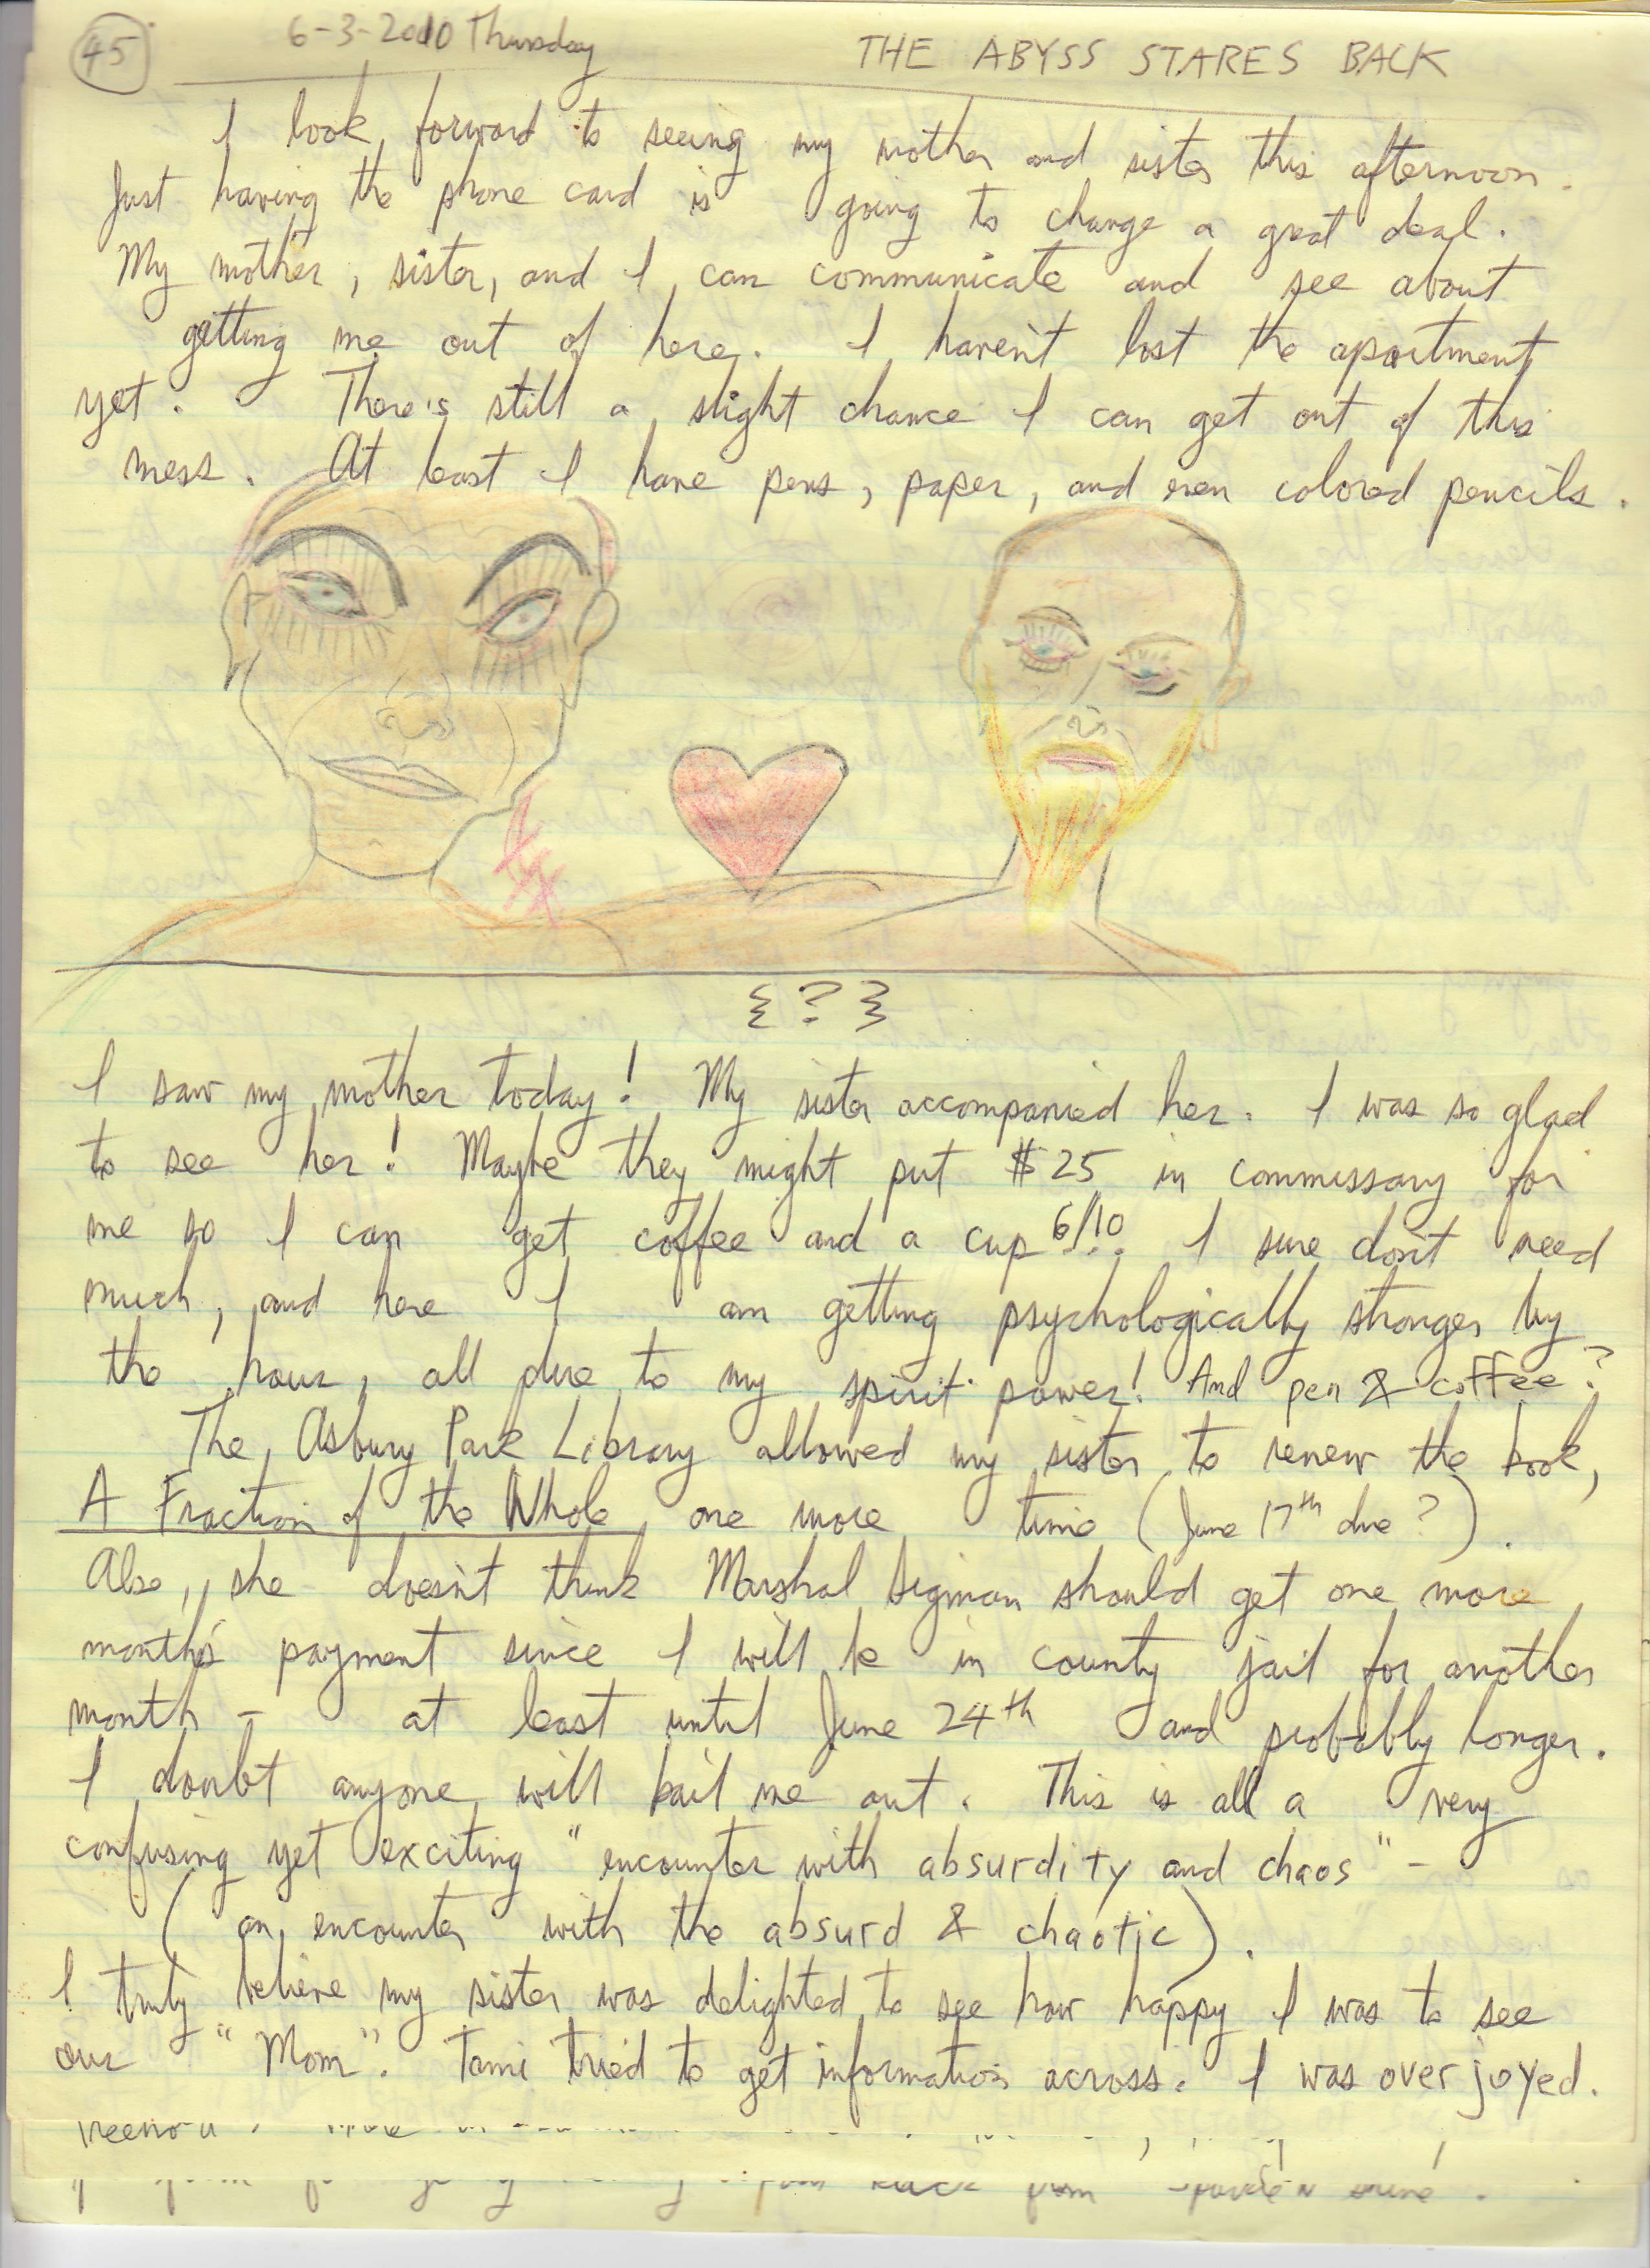 45 6-3-2010 Thursday THE ABYSS STARES BACK
I look forward to seeing my mother and sister this afternoon.
Just having the phone card is going to change a great deal.
My mother, sister, and I can communicate and see about
getting me out of here. I haven't lost the apartment
yet. There's still a slight chance I can get out of this
mess. At least I have pens, paper, and even colored pencils.
{?}
I saw my mother today! My sister accompanied her. I was so glad
to see her! Maybe they might put $25 in commissary for
me so I can get coffee and a cup 6/10!.. I sure don't need
much, and here I am getting psychologically stronger by
the hour, all due to my spirit power! And pen & coffee?
The Asbury Park Library allowed my sister to renew the book,
A Fraction of the Whole one more time (June 17th due?).
Also, she doesn't think Marshal Sigman should get one more
month's payment since I will be in county jail for another
month - at least until June 24th and probably longer.
I doubt anyone will bail me out. This is all a very
confusing yet exciting "encounter with absurdity and chaos" -
(an encounter with the absurd & chaotic).
I truly believe my sister was delighted to see how happy I was to see
our "Mom". Tami tried to get information across. I was overjoyed.
back from